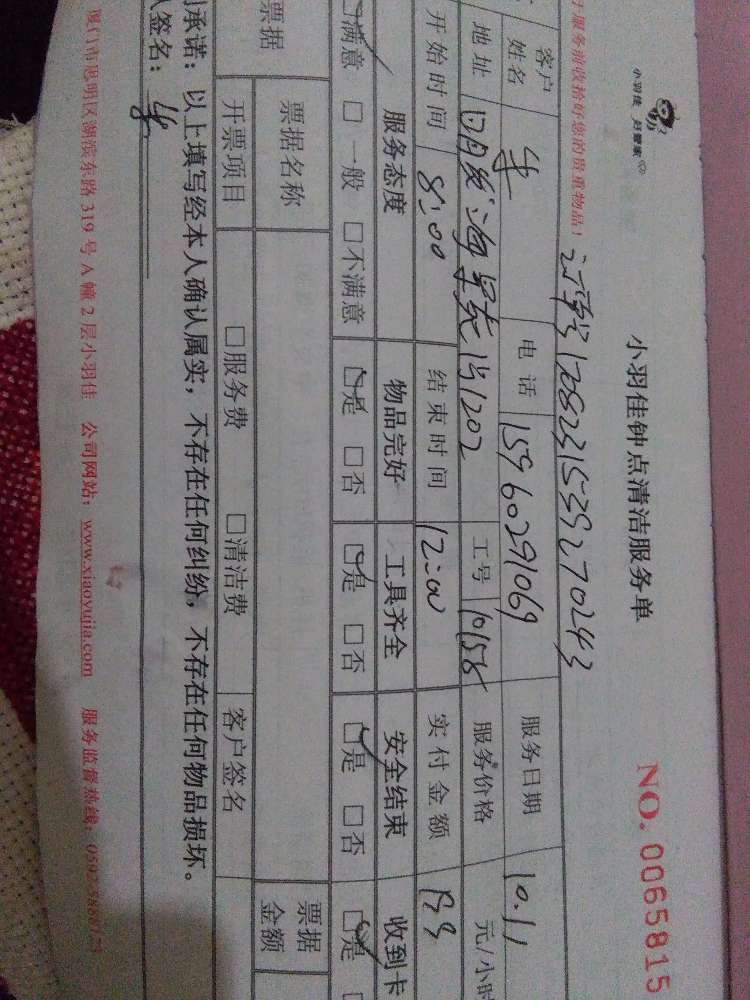 小羽佳 好管家
小羽佳钟点清洁服务单
NO. 0065815
于服务前收拾好您的贵重物品！
客户姓名 电话 15960291069 服务日期 10.11
地址 明发海景 1202 工号 10158 服务价格 元/小时
开始时间 8:00 结束时间 12:00 实付金额
服务态度 物品完好 工具齐全 安全结束 收到卡
满意 □一般 □不满意 □是 □否 □是 □否 □是 □否 □是
票据 票据名称 票据金额
开票项目 □服务费 □清洁费 客户签名
承诺：以上填写经本人确认属实，不存在任何纠纷，不存在任何物品损坏。
人签名：
厦门市思明区湖滨东路319号A幢2层小羽佳 公司网站：www.xiaoyujia.com 服务监督热线：